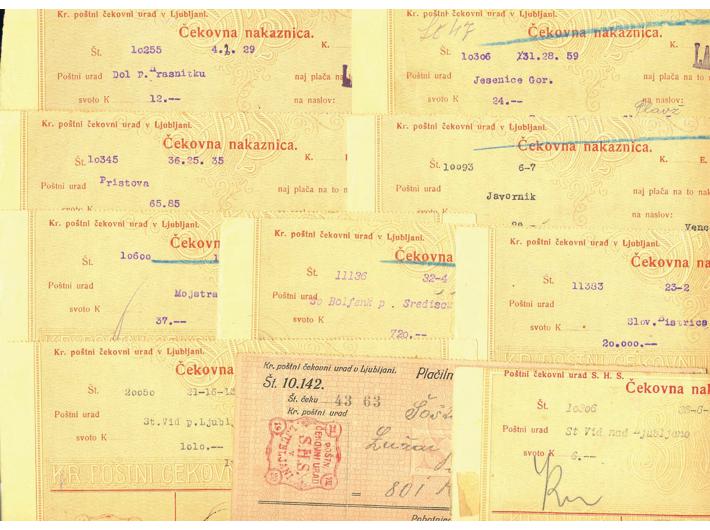 Kr. poštni čekovni urad v Ljubljani.
Čekovna nakaznica.
Št. 10255 4.2. 29 K.
Poštni urad Dol p. naj plača
svoto K 12.-- na naslov:
Kr. poštni čekovni urad v Ljubljani.
Čekovna nakaznica.
Št. 10306 31.28. 59 K.
Poštni urad Jesenice Gor. naj plača na
svoto K 24.-- na naslov:
Plavž
Kr. poštni čekovni urad v Ljubljani.
Čekovna nakaznica.
Št. 10345 36.25. 35 K.
Poštni urad Pristova naj plača na to n
svoto K 65.85
Kr. poštni čekovni urad v Ljubljani.
Čekovna nakaznica.
Št. 10093 6-7 K. E.
Poštni urad Javornik naj plača na to nak
svoto K na naslov:
Venc
Kr. poštni čekovni urad v Ljubljani.
Čekovn
Št. 10600 1
Poštni urad Mojstra
svoto K 37.--
Kr. poštni čekovni urad v Ljubljani.
Čekovna
Št. 11136 32-4
Poštni urad Bolfenk p. Središč
svoto K 720.--
Kr. poštni čekovni urad v Ljubljani.
Čekovna na
Št. 11383 23-2
Poštni urad Slov. Bistrica
svoto K 20.000.--
KR. POŠTNI ČEKOVN
Kr. poštni čekovni urad v Ljubljani.
Čekovna
Št. 20050
Poštni urad St.Vid p.Ljubl
svoto K 1010.--
KR. POŠTNI ČEKOVNI
Kr. poštni čekovni urad v Ljubljani. Plačiln
Št. 10.142.
Št. čeku 43 63
Kr. poštni urad Šošt
POŠTNI ČEKOVNI URAD S.H.S. V LJUBLJANI
= 801 K
Pobotnic
Kr. poštni čekovni urad S. H. S.
Čekovna nal
Št. 10306
Poštni urad St Vid nad Ljubljano
svoto K 6.--